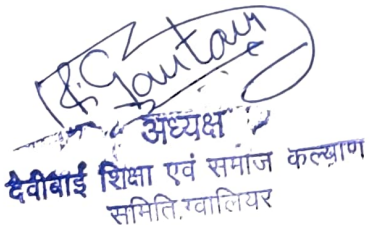 Gautam
अध्यक्ष
देवीबाई शिक्षा एवं समाज कल्याण
समिति,ग्वालियर